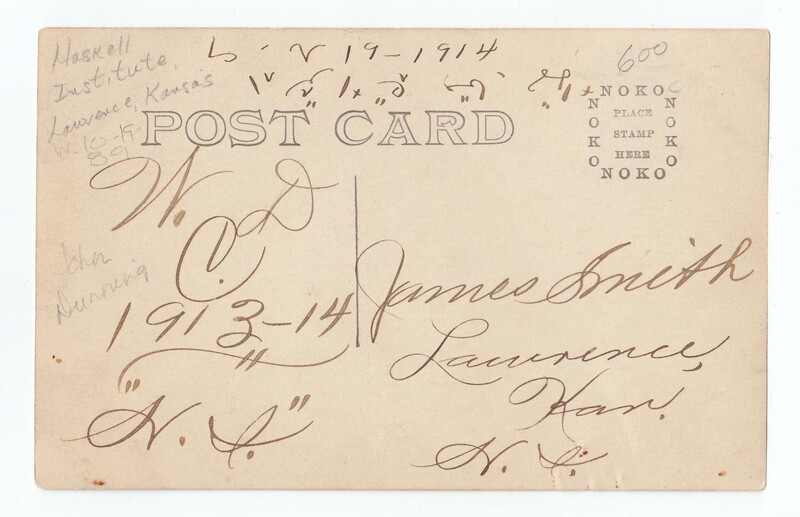 Haskell
Institute,
Lawrence, Kansas
10-19-
89
19-1914
600
POST CARD
NOKO
NOKO
PLACE
STAMP
HERE
NOKO
NOKO
W.
C. D
1913-14
"H. I."
John
Dunning
James Smith
Lawrence,
Kan.
H. I.